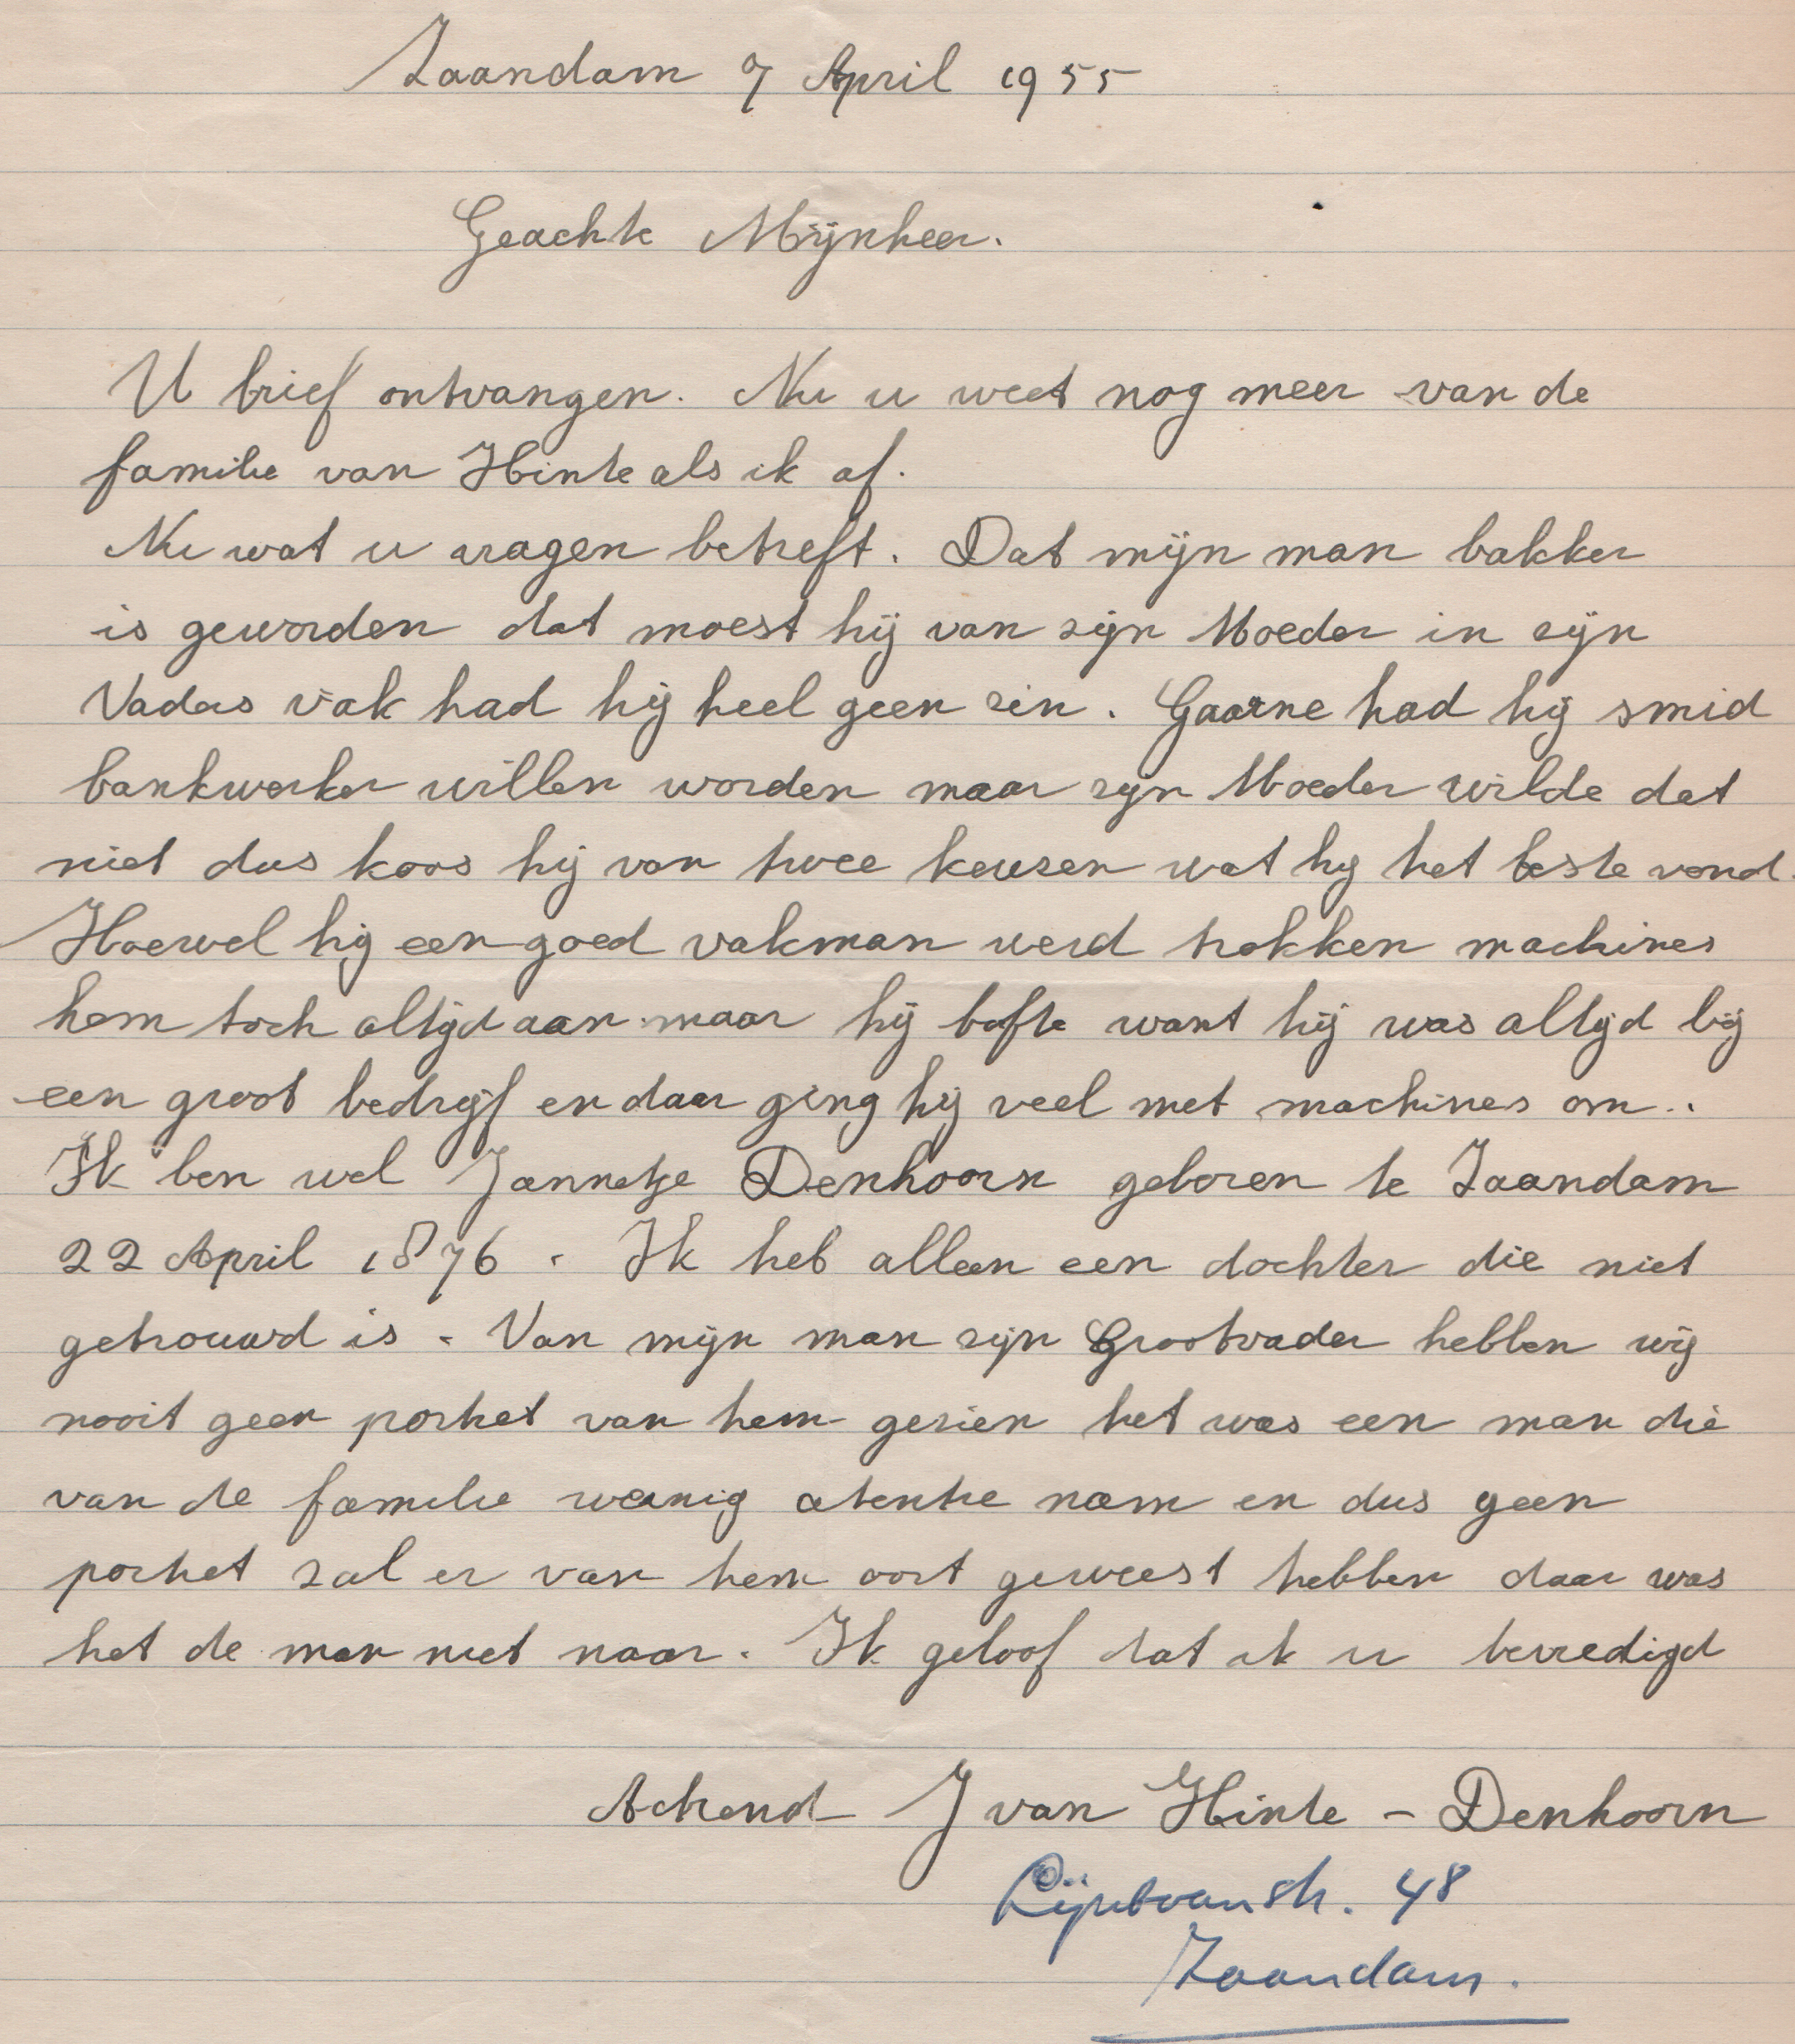 Zaandam 7 April 1955
Geachte Mijnheer.
U brief ontvangen. Nu u weet nog meer van de
familie van Hinte als ik af.
Nu wat u vragen betreft. Dat mijn man bakker
is geworden dat moest hij van zijn Moeder in zijn
Vaders vak had hij heel geen zin. Gaarne had hij smid
bankwerker willen worden maar zijn Moeder wilde dat
niet dus koos hij van twee keuzen wat hij het beste vond.
Hoewel hij een goed vakman werd trokken machines
hem toch altijd aan maar hij bofte want hij was altijd bij
een groot bedrijf en daar ging hij veel met machines om..
Ik ben wel Jannetje Denhoorn geboren te Zaandam
22 April 1876. Ik heb alleen een dochter die niet
getrouwd is. Van mijn man zijn Grootvader hebben wij
nooit geen portret van hem gezien het was een man die
van de familie weinig atentie nam en dus geen
portret zal er van hem oort geweest hebben daar was
het de man niet naar. Ik geloof dat ik u bevredigd
Achtend J van Hinte - Denhoorn
48
Zaandam.